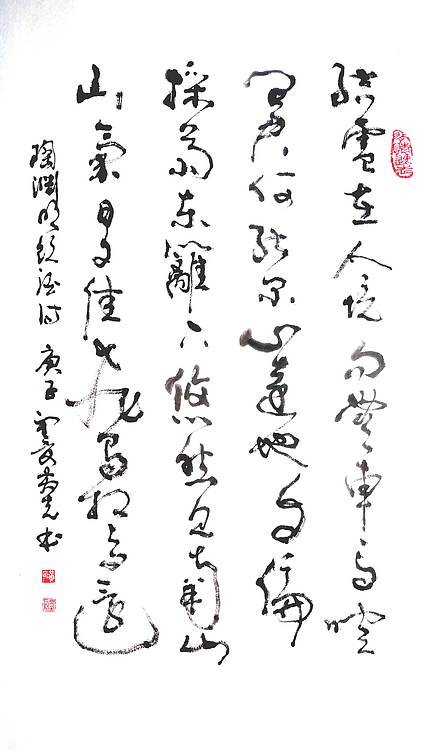 結廬在人境而無車馬喧
問君何能爾心遠地自偏
採菊東籬下悠然見南山
山氣日夕佳飛鳥相与還
陶淵明飲酒詩 庚子 书